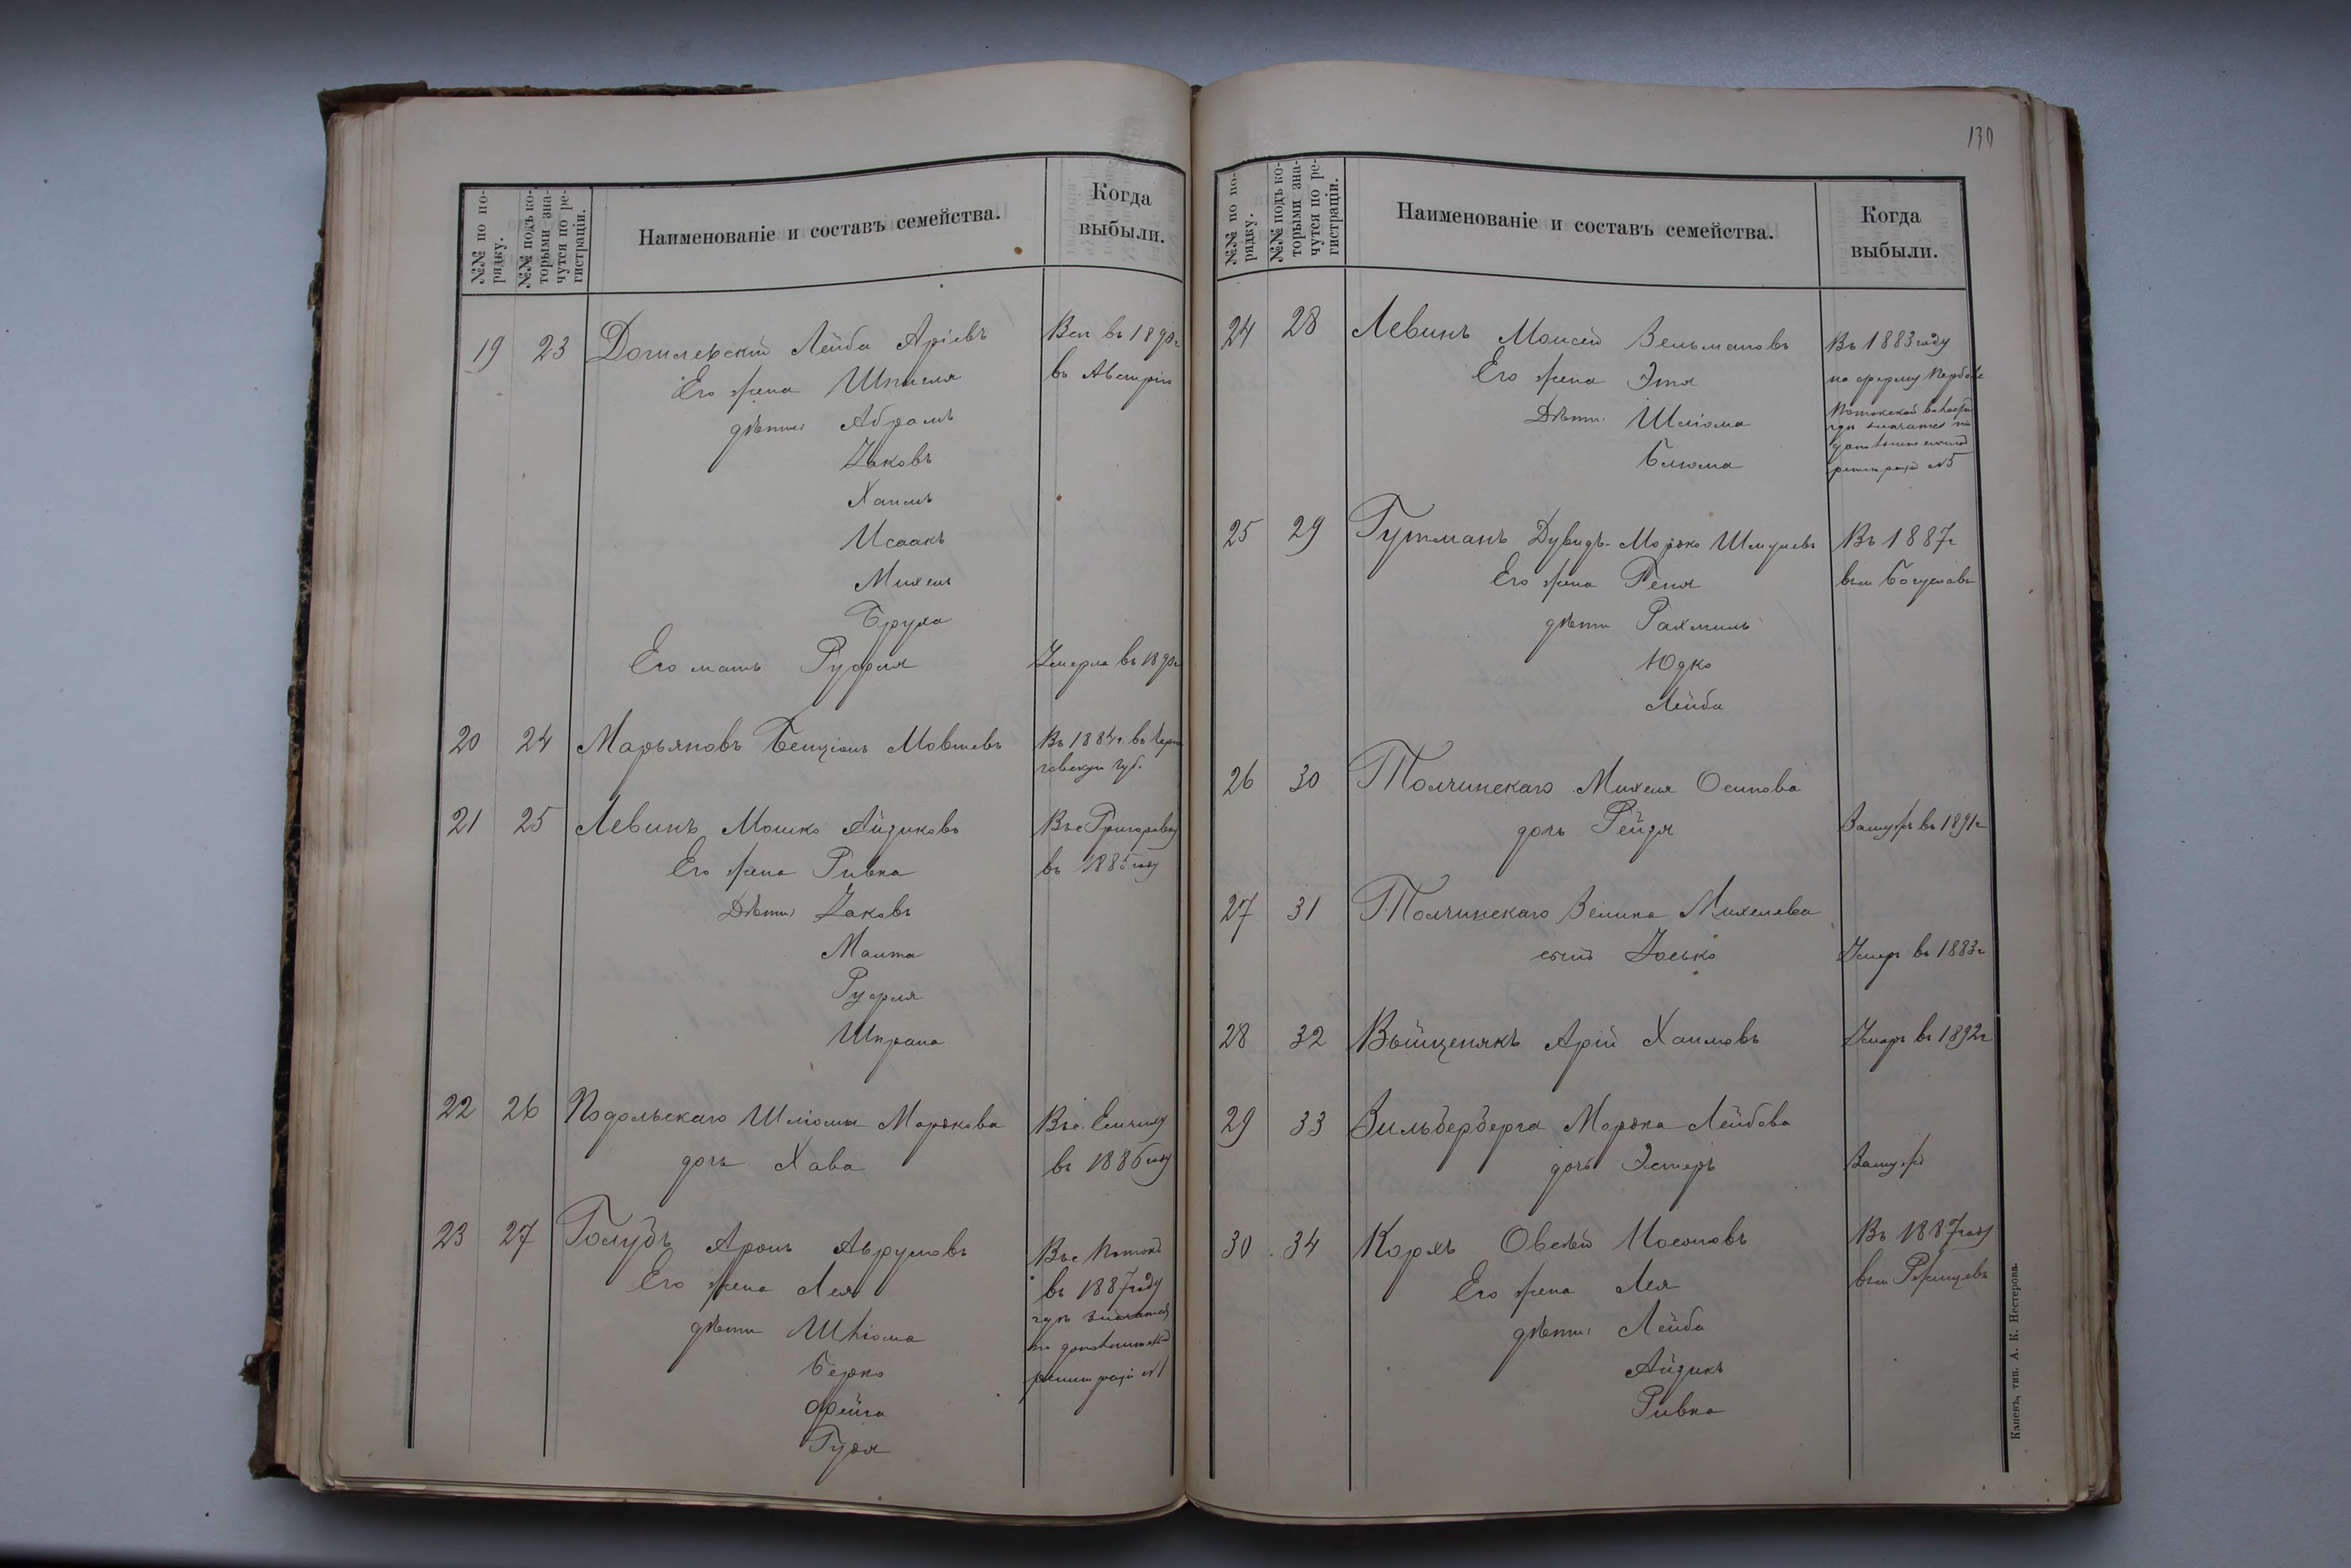 №№ по по-
рядку.
№№ подъ ко-
торыми зна-
чутся по ре-
гистраціи.
Наименованіе и составъ семейства.
Когда
выбыли.
19 23 Лейба Аріевъ
Его жена Шпинця
дѣти: Абрамъ
Яковъ
Хаимъ
Исаакъ
Михель
Бруха
Его мать Руфля
Всѣ въ 1890г
въ Австрію
Умерла въ 1890г
20 24 Марьяновъ Бенціонъ Мовшевъ
Въ 1884г. въ Черни
говскую губ.
21 25 Левинъ Мошко Айзиковъ
Его жена Ривка
Дѣти: Яковъ
Малта
Руфля
Шпраца
Въ с
въ 1885 году
22 26 Подольскаго Шліомы Моржкова
дочь Хава
Въ с.
въ 1886 году
23 27 Голубъ Аронъ Аврумовъ
Его жена Лея
дѣти Шліома
Берко
Фейга
Гузя
Въ с Потокъ
въ 1887 году
гдѣ значатся
по дополнительной
регистраціи №1
130
№№ по по-
рядку.
№№ подъ ко-
торыми зна-
чутся по ре-
гистраціи.
Наименованіе и составъ семейства.
Когда
выбыли.
24 28 Левинъ Моисей Зельмановъ
Его жена Этя
Дѣти: Шліома
Блюма
Въ 1883 году
на ферму
гдѣ значатся по
регистраціи №5
25 29 Гутманъ Дувидъ-Моржко Шмулевъ
Его жена Реня
дѣти Рахмиль
Юдко
Лейба
Въ 1887г
въ м Богуславъ
26 30 Толчинскаго Михеля Осипова
дочь Рейзя
Замужъ въ 1891г
27 31 Толчинскаго Зелика Михелева
сынъ Іосько
Умеръ въ 1883г
28 32 Арій Хаимовъ
Умеръ въ 1892г
29 33 Зильберберга Моржка Лейбова
дочь Эстеръ
Замужъ
30 34 Коржъ Овсѣй Мосѣновъ
Его жена Лея
дѣти: Лейба
Айзикъ
Ривка
Въ 1887 году
въ м Ржищевъ
Каневъ, тип. А. К. Нестерова.